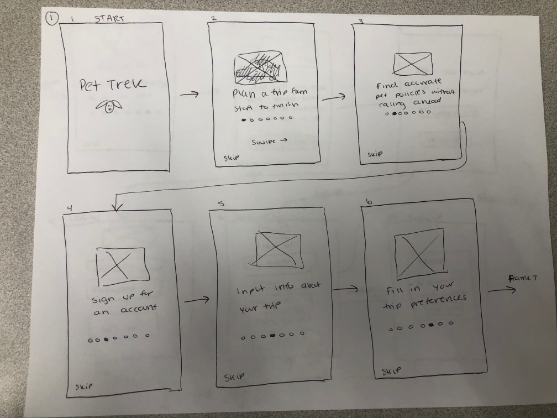 1
1 START
Pet Trek
2
Plan a trip from
start to finish
Swipe →
SKIP
3
Find accurate
pet policies without
calling ahead
SKIP
4
Sign up for
an account
SKIP
5
Input info about
your trip
SKIP
6
Fill in your
trip preferences
SKIP
Frame 7